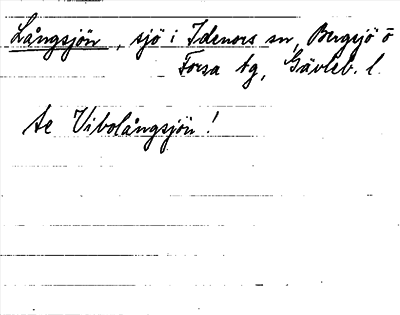 Långsjön, sjö i Idenors sn, Bergsjö o
Forsa tg, Gävleb. l.
se Vibolångsjön!